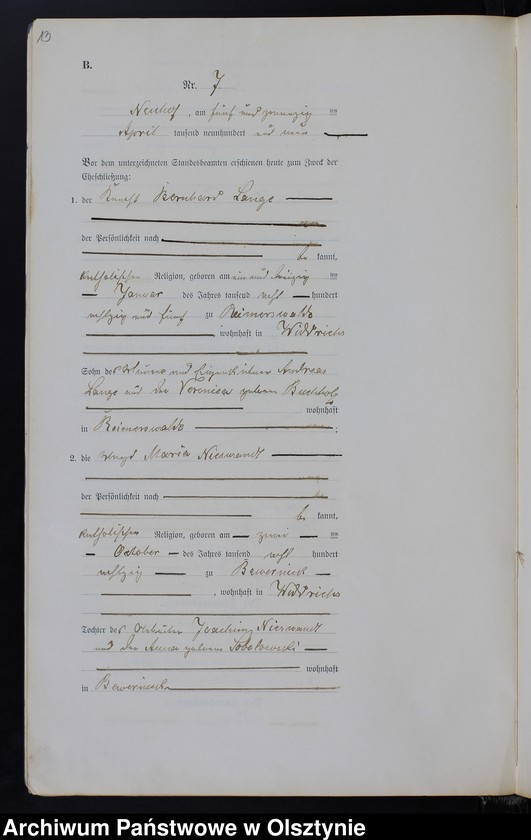 13
B.
Nr. 7
Neuhof, am fünf und zwanzig ten
April tausend neunhundert und neun
Vor dem unterzeichneten Standesbeamten erschienen heute zum Zweck der
Eheschließung:
1. der Knecht Bernhard Lange
der Persönlichkeit nach
be kannt,
katholischer Religion, geboren am ein und dreißig ten
Januar des Jahres tausend acht hundert
achtzig und fünf zu Reimerswalde
, wohnhaft in Widdrichs
Sohn des und Eigenkätner Andreas
Lange und der Veronica geborene Buchholz
wohnhaft
in Reimerswalde ;
2. die Magd Maria Nieswandt
der Persönlichkeit nach
be kannt,
katholischer Religion, geboren am zwei ten
October des Jahres tausend acht hundert
achtzig zu Bewernick
, wohnhaft in Widdrichs
Tochter des Joachim Nieswandt
und der Anna geborene Sobolewski
wohnhaft
in Bewernick
Archiwum Państwowe w Olsztynie